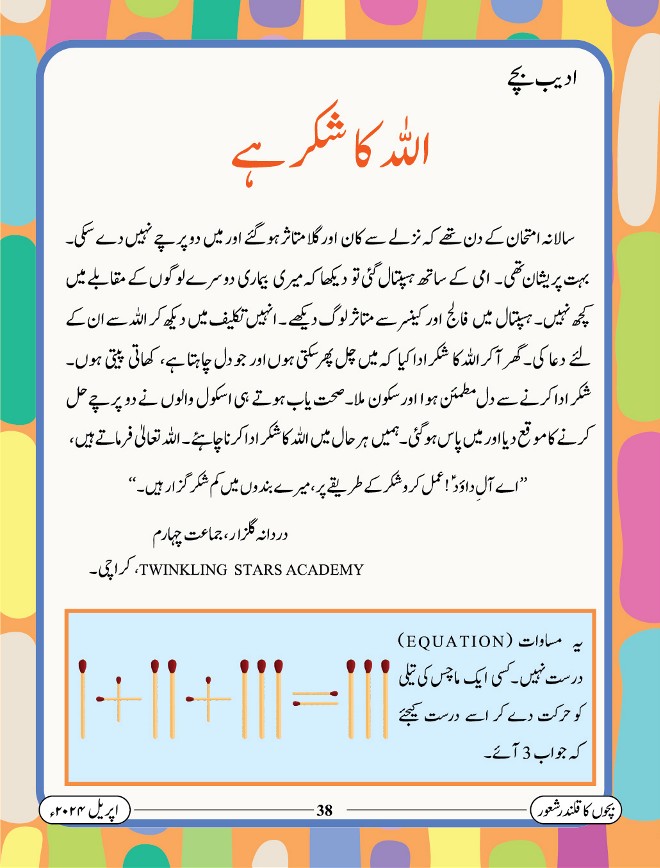 ادیب بچے
اللہ کا شکر ہے
سالانہ امتحان کے دن تھے کہ نزلے سے کان اور گلا متاثر ہو گئے اور میں دو پرچے نہیں دے سکی۔
بہت پریشان تھی۔ امی کے ساتھ ہسپتال گئی تو دیکھا کہ میری بیماری دوسرے لوگوں کے مقابلے میں
کچھ نہیں۔ ہسپتال میں فالج اور کینسر سے متاثر لوگ دیکھے۔ انہیں تکلیف میں دیکھ کر اللہ سے ان کے
لئے دعا کی۔ گھر آ کر اللہ کا شکر ادا کیا کہ میں چل پھر سکتی ہوں اور جو دل چاہتا ہے، کھاتی پیتی ہوں۔
شکر ادا کرنے سے دل مطمئن ہوا اور سکون ملا۔ صحت یاب ہوتے ہی اسکول والوں نے دو پرچے حل
کرنے کا موقع دیا اور میں پاس ہو گئی۔ ہمیں ہر حال میں اللہ کا شکر ادا کرنا چاہئے۔ اللہ تعالیٰ فرماتے ہیں،
”اے آلِ داؤدؑ! عمل کرو شکر کے طریقے پر، میرے بندوں میں کم شکر گزار ہیں۔“
دردانہ گلزار، جماعت چہارم
TWINKLING STARS ACADEMY، کراچی۔
یہ مساوات (EQUATION)
درست نہیں۔ کسی ایک ماچس کی تیلی
کو حرکت دے کر اسے درست کیجئے
کہ جواب 3 آئے۔
بچوں کا قلندر شعور
38
اپریل ۲۰۲۴ء